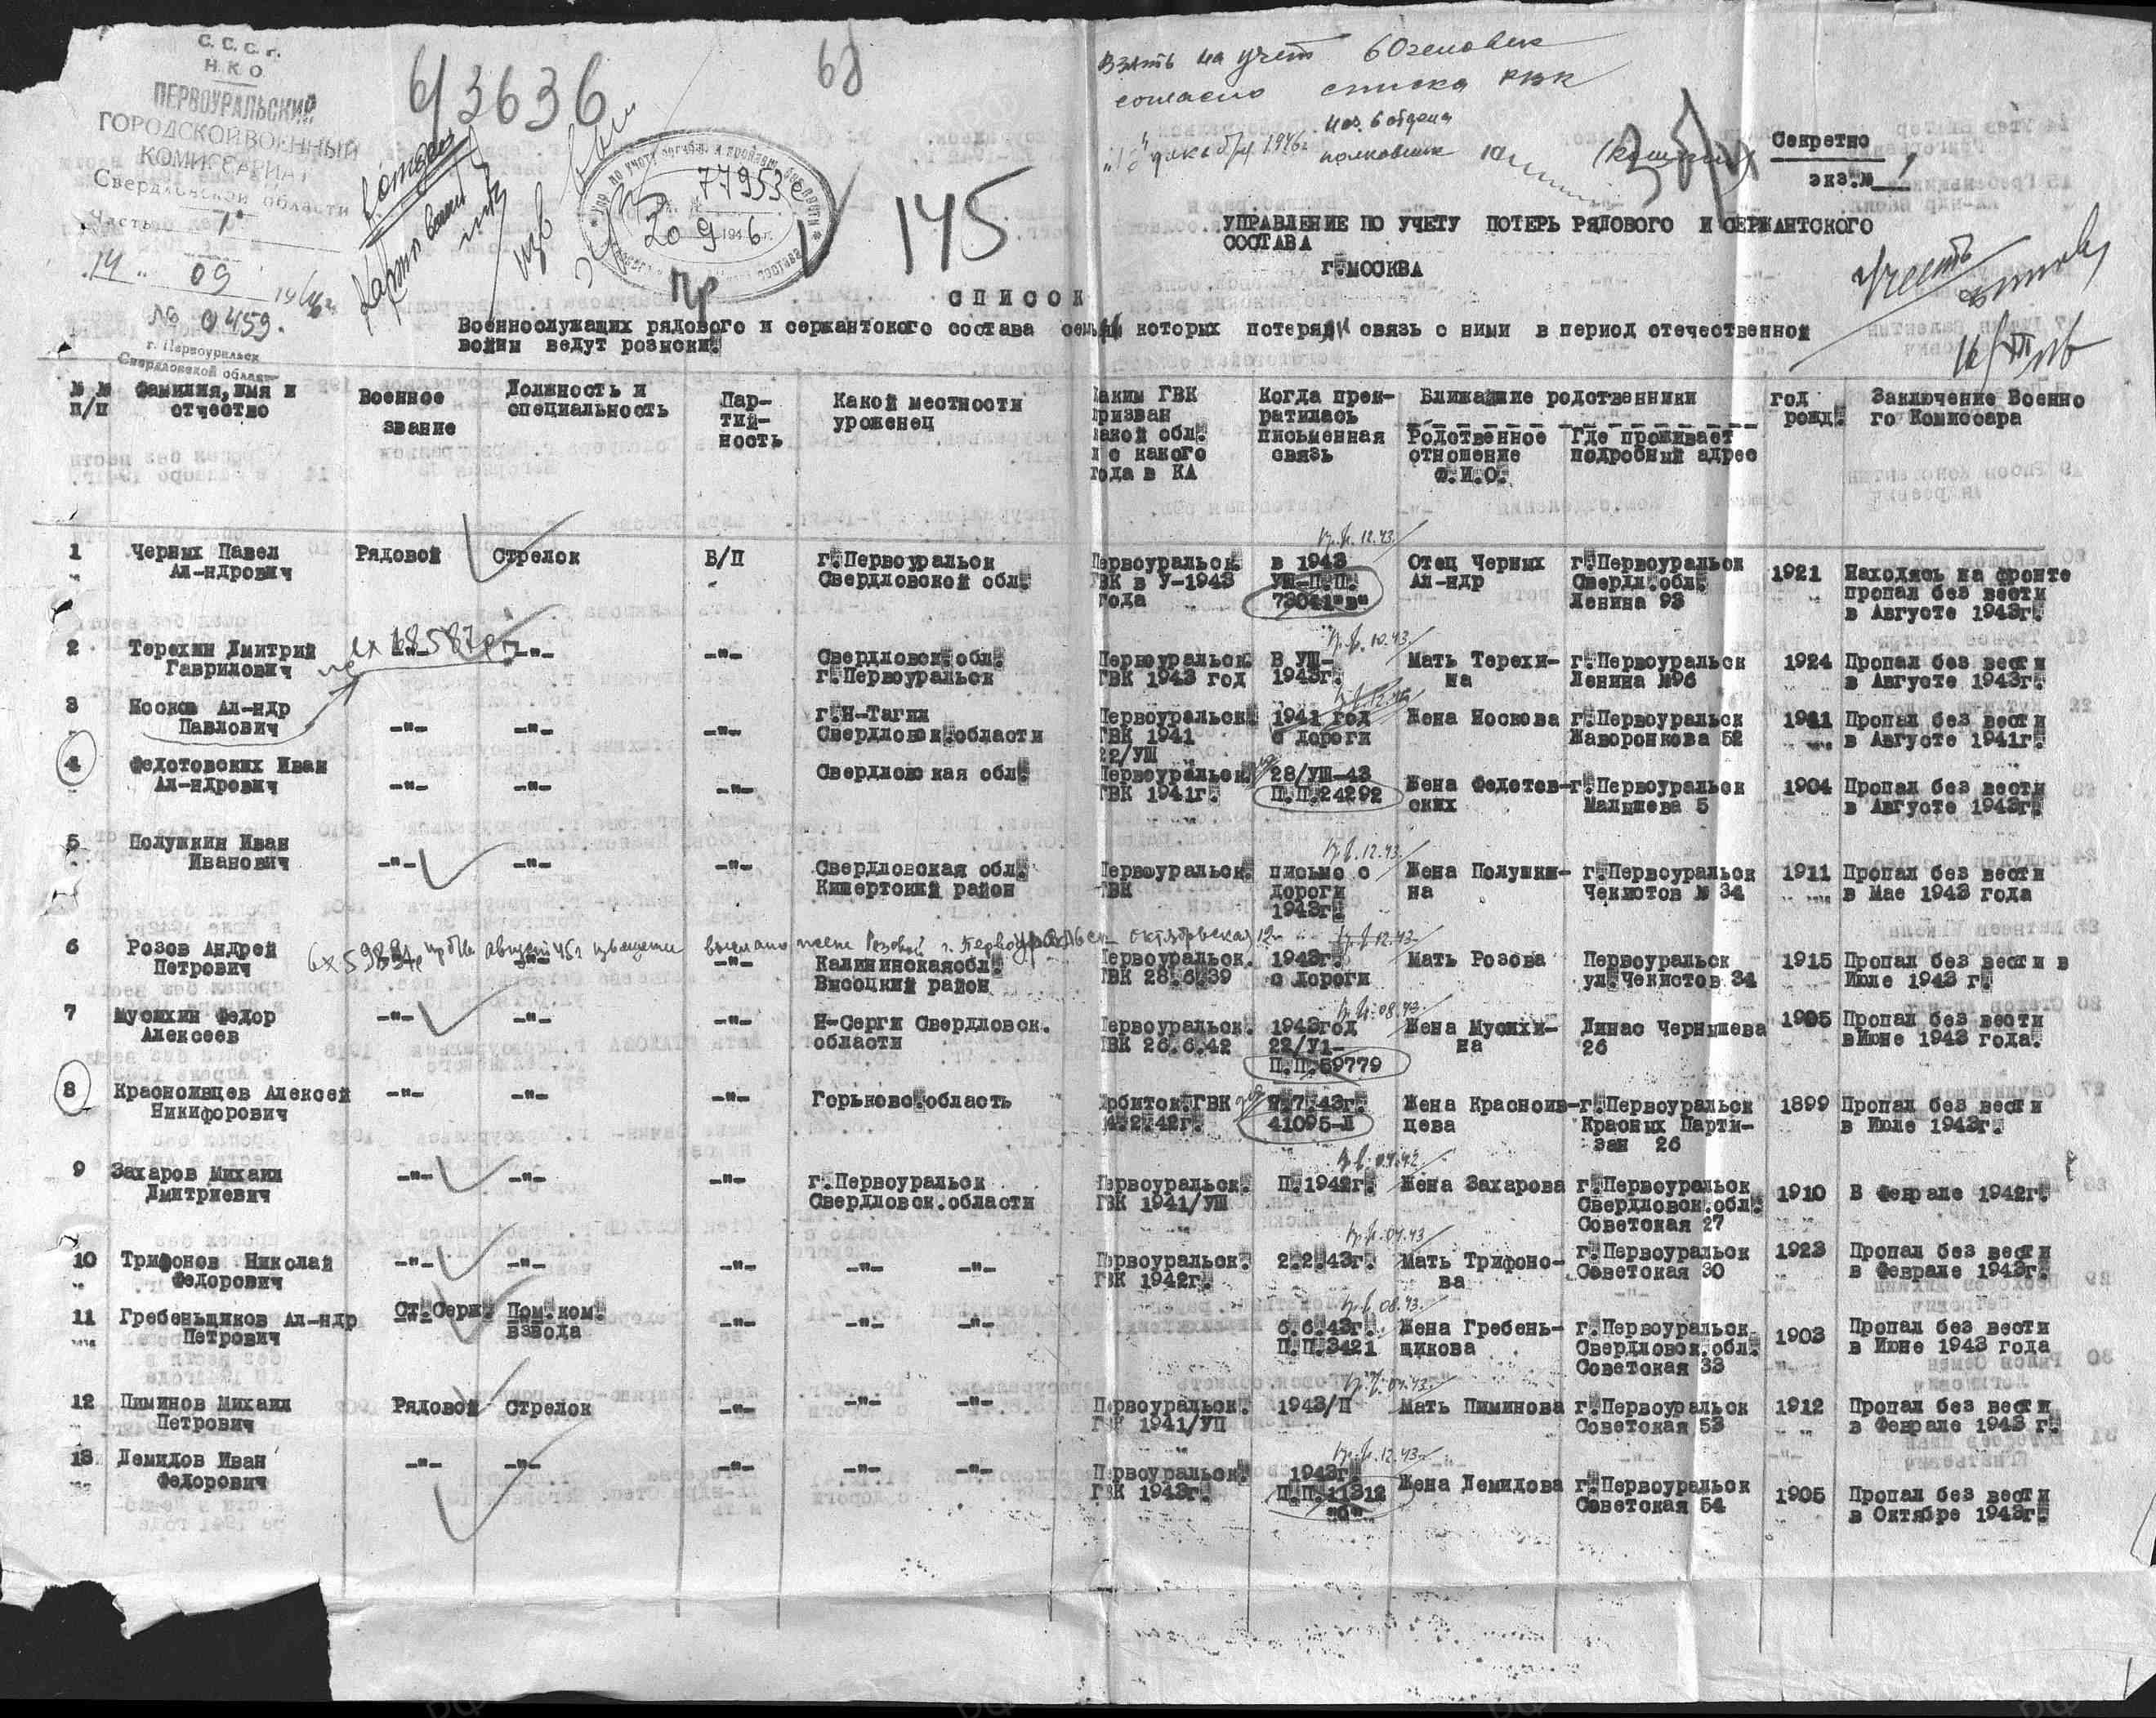 С.С.С.Р.
Н.К.О.
ПЕРВОУРАЛЬСКИЙ
ГОРОДСКОЙ ВОЕННЫЙ
КОМИССАРИАТ
Свердловской области
Часть 1
14 " 09 1946г
№ 0459.
г. Первоуральск
Свердловской области
6/3636
68
77953с
20 9 1946 г.
145
Пр
Взять на учет 60 человек
согласно списка РВК
нач. 6 отдела
декабря 1946г. полковник
Секретно
экз.№ 1
УПРАВЛЕНИЕ ПО УЧЕТУ ПОТЕРЬ РЯДОВОГО И СЕРЖАНТСКОГО
СОСТАВА
г.МОСКВА
Учесть
16/XII 46
СПИСОК
Военнослужащих рядового и сержантского состава семьи которых потеряли связь с ними в период отечественной
войны ведут розыски.
№ № п/п | Фамилия, имя и отчество | Военное звание | Должность и специальность | Пар-тий-ность | Какой местности уроженец | Каким ГВК призван какой обл. и с какого года в КА | Когда прек-ратилась письменная связь | Ближайшие родственники | год рожд. | Заключение Военно го Комиссара
Родственное отношение Ф.И.О. | Где проживает подробный адрес
1 Черных Павел Рядовой Стрелок Б/П г.Первоуральск Первоуральск. в 1943 Отец Черных г.Первоуральск 1921 Находясь на фронте
" Ал-ндрович " Свердловской обл. ГВК в У-1943 УШ-П.П. Ал-ндр Свердл.обл. пропал без вести
года 73041"в" Ленина 93 в Августе 1943г.
пр.в. 12.43.
2 Терехин Дмитрий -"- -"- -"- Свердловск.обл. Первоуральск. В УШ- Мать Терехи- г.Первоуральск 1924 Пропал без вести
Гаврилович г.Первоуральск ГВК 1943 год 1943г. на Ленина №96 в Августе 1943г.
пр.в. 10.43.
3 Носков Ал-ндр -"- -"- -"- г.Н-Тагил Первоуральск. 1941 год Жена Носкова г.Первоуральск 1911 Пропал без вести
Павлович Свердловск.области ГВК 1941 с дороги Жаворонкова 52 в Августе 1941г.
22/УШ
4 Федотовских Иван -"- -"- -"- Свердловская обл. Первоуральск. 28/УШ-43 Жена Федотов- г.Первоуральск 1904 Пропал без вести
Ал-ндрович ГВК 1941г. П.П.24292 ских Малышева 5 в Августе 1943г.
5 Полушкин Иван -"- -"- -"- Свердловская обл. Первоуральск. письмо с Жена Полушки- г.Первоуральск 1911 Пропал без вести
Иванович Кишертский район ГВК дороги на Чекистов № 34 в Мае 1943 года
1943г.
пр.в. 12.43.
6 Розов Андрей -"- -"- Калининскаяобл. Первоуральск. 1943г. Мать Розова Первоуральск 1915 Пропал без вести в
Петрович Высоцкий район ГВК 28.6.39 с дороги ул.Чекистов 34 Июле 1943 г.
пр.в. 12.43.
7 Мусихин Федор -"- -"- -"- Н-Серги Свердловск. Первоуральск. 1943год Жена Мусихи- Динас Чернышева 1905 Пропал без вести
Алексеев области ГВК 26.6.42 22/У1- на 26 вИюне 1943 года.
П.П.59779
пр.в. 08.43.
8 Красноивцев Алексей -"- -"- -"- Горьковс.область Ирбитск.ГВК 7.7.43г. Жена Красноив- г.Первоуральск 1899 Пропал без вести
Никифорович 4.2.42г. 41095-Л цева Красных Парти- в Июле 1943г.
зан 26
9 Захаров Михаил -"- -"- -"- г.Первоуральск Первоуральск. П.1942г. Жена Захарова г.Первоуральск 1910 В Феврале 1942г.
Дмитриевич Свердловск.области ГВК 1941/УШ Свердловск.обл.
Советская 27
10 Трифонов Николай -"- -"- -"- -"- -"- Первоуральск. 2.2.43г. Мать Трифоно- г.Первоуральск 1923 Пропал без вести
" Федорович ГВК 1942г. ва Советская 30 в Феврале 1943г.
пр.в. 04.43
11 Гребеньщиков Ал-ндр Ст.Серж. Пом.ком. -"- -"- -"- 6.6.43г. Жена Гребень- г.Первоуральск 1903 Пропал без вести
Петрович взвода П.П.3421 щикова Свердловск.обл. в Июне 1943 года
Советская 33
пр.в. 08.43.
12 Пиминов Михаил Рядовой Стрелок -"- -"- -"- Первоуральск. 1943/П Мать Пиминова г.Первоуральск 1912 Пропал без вести
Петрович ГВК 1941/УП Советская 53 в Феврале 1943 г.
пр.в. 04.43.
13 Демидов Иван -"- -"- -"- -"- -"- Первоуральск. 1943г. Жена Демидова г.Первоуральск 1905 Пропал без вести
Федорович ГВК 1943г. П.П.11312 Советская 54 в Октябре 1943г.
"О"
пр.в. 12.43.